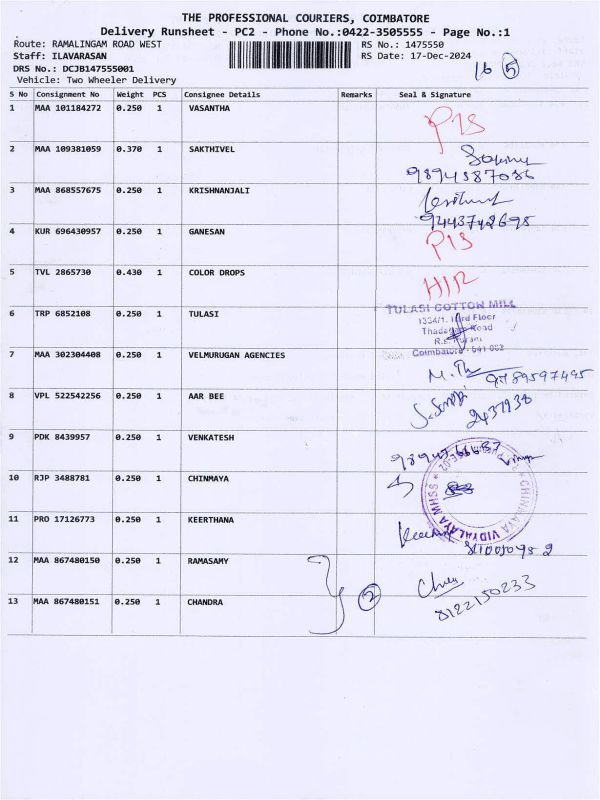 THE PROFESSIONAL COURIERS, COIMBATORE
Delivery Runsheet - PC2 - Phone No.:0422-3505555 - Page No.:1
Route: RAMALINGAM ROAD WEST RS No.: 1475550
Staff: ILAVARASAN RS Date: 17-Dec-2024
DRS No.: DCJB147555001
Vehicle: Two Wheeler Delivery
16 5
S No Consignment No Weight PCS Consignee Details Remarks Seal & Signature
1 MAA 101184272 0.250 1 VASANTHA
2 MAA 109381059 0.370 1 SAKTHIVEL
9894387086
3 MAA 868557675 0.250 1 KRISHNANJALI
9443742695
4 KUR 696430957 0.250 1 GANESAN
5 TVL 2865730 0.430 1 COLOR DROPS
6 TRP 6852108 0.250 1 TULASI
TULASI COTTON MILL
Floor
Road
Coimbatore
7 MAA 302304408 0.250 1 VELMURUGAN AGENCIES
9789597495
8 VPL 522542256 0.250 1 AAR BEE
2437938
9 PDK 8439957 0.250 1 VENKATESH
10 RJP 3488781 0.250 1 CHINMAYA
CHINMAYA VIDYALAYA MHSS
11 PRO 17126773 0.250 1 KEERTHANA
12 MAA 867480150 0.250 1 RAMASAMY
13 MAA 867480151 0.250 1 CHANDRA
2
8122150233